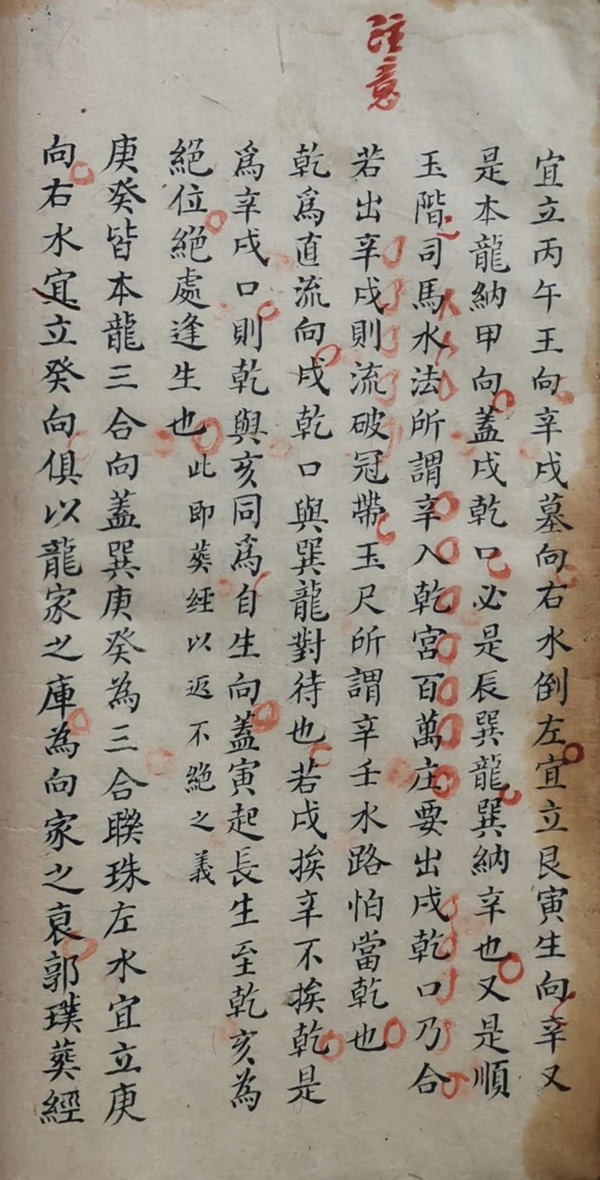 注意
宜立丙午王向辛戌墓向右水倒左宜立艮寅生向辛又
是本龍納甲向蓋戌乾口必是辰巽龍巽納辛也又是順
玉階司馬水法所謂辛入乾宮百萬庄要出戌乾口乃合
若出辛戌則流破冠帶玉尺所謂辛壬水路怕當乾也
乾為直流向戌乾口與巽龍對待也若戌挨辛不挨乾是
為辛戌口則乾與亥同為自生向蓋寅起長生至乾亥為
絕位絕處逢生也此即葬經以返不絕之義
庚癸皆本龍三合向蓋巽庚癸為三合聯珠左水宜立庚
向右水宜立癸向俱以龍家之庫為向家之衰郭璞葬經